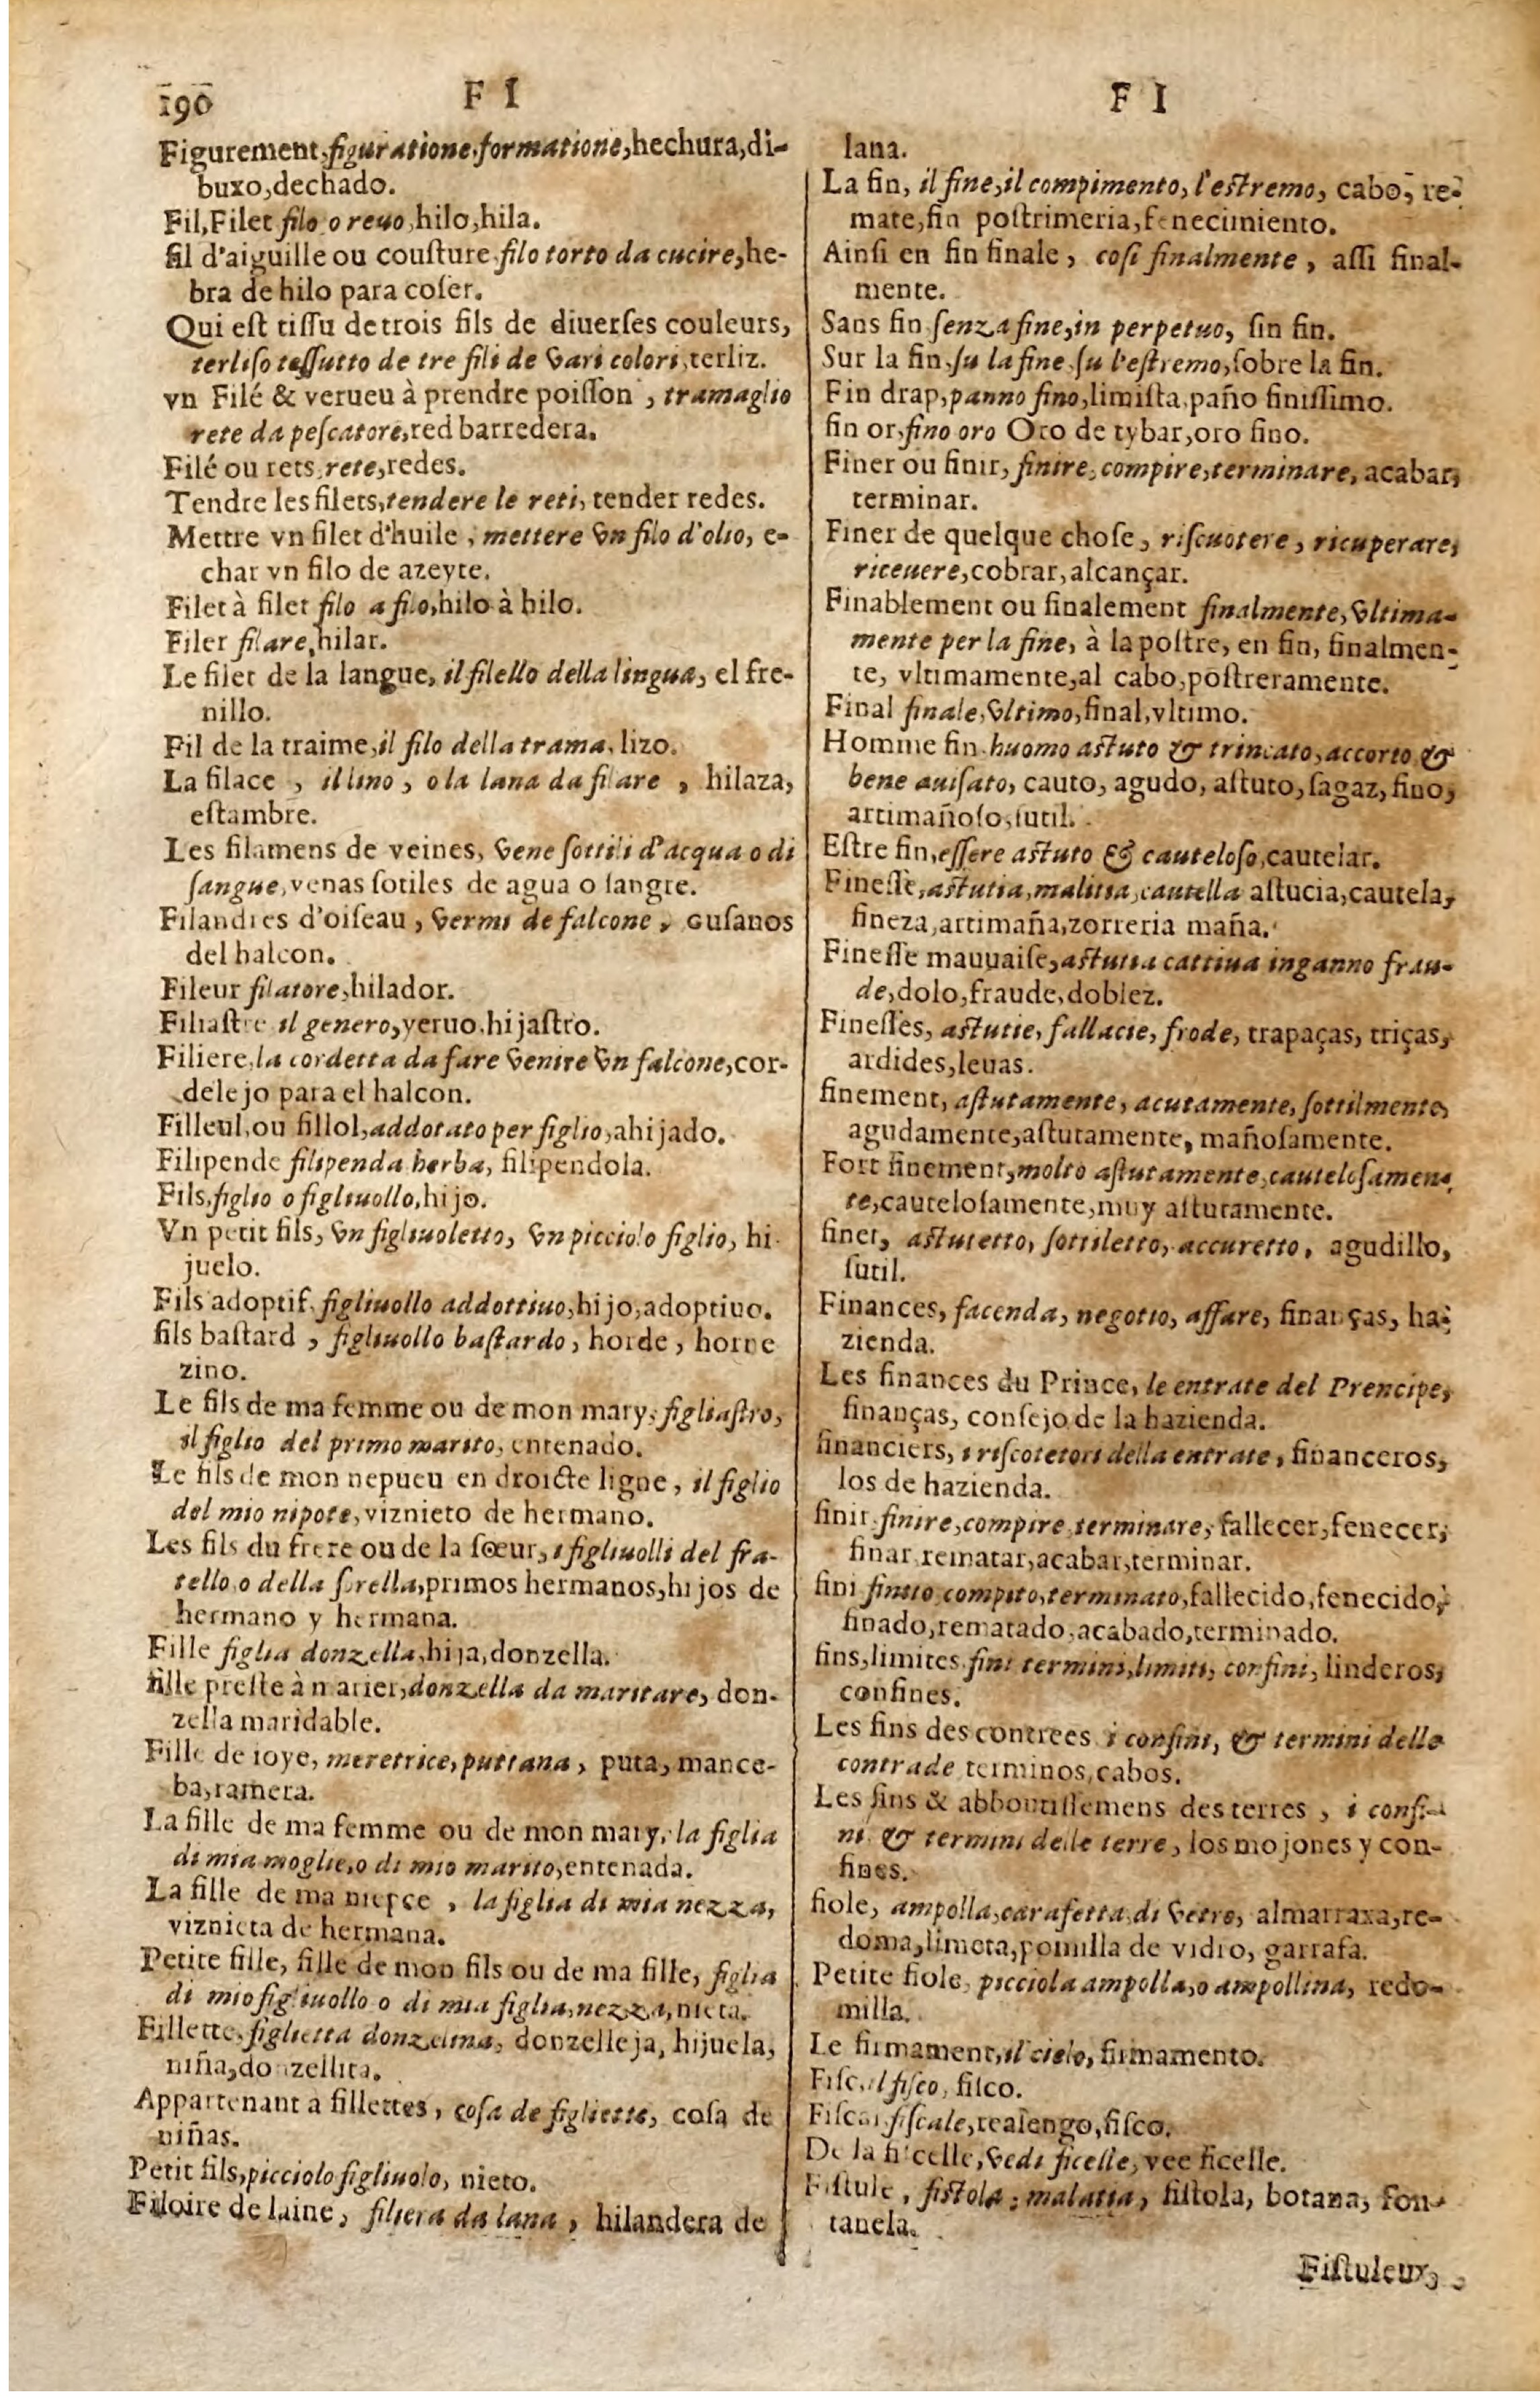 190 F I
Figurement, figuratione, formatione, hechura, di-
buxo, dechado.
Fil, Filet filo o reuo, hilo, hila.
fil d'aiguille ou couſture filo torto da cucire, he-
bra de hilo para coſer.
Qui eſt tiſſu de trois fils de diuerſes couleurs,
terliſo teſſutto de tre fili de vari colori, terliz.
vn Filé & verueu à prendre poiſſon, tramaglio
rete da peſcatore, red barredera.
Filé ou rets, rete, redes.
Tendre les filets, tendere le reti, tender redes.
Mettre vn filet d'huile, mettere vn filo d'olio, e-
char vn filo de azeyte.
Filet à filet filo a filo, hilo à hilo.
Filer filare, hilar.
Le filet de la langue, il filello della lingua, el fre-
nillo.
Fil de la traime, il filo della trama, lizo.
La filace, il lino, o la lana da filare, hilaza,
eſtambre.
Les filamens de veines, vene ſottili d'acqua o di
ſangue, venas ſotiles de agua o ſangre.
Filandres d'oiſeau, vermi de falcone, Guſanos
del halcon.
Fileur filatore, hilador.
Filiaſtre il genero, yeruo, hijaſtro.
Filiere, la cordetta da fare venire vn falcone, cor-
delejo para el halcon.
Filleul, ou fillol, addotato per figlio, ahijado.
Filipende filipenda herba, filipendola.
Fils, figlio o figliuollo, hijo.
Vn petit fils, vn figliuoletto, vn picciolo figlio, hi-
juelo.
Fils adoptif, figliuollo addottiuo, hijo, adoptiuo.
fils baſtard, figliuollo baſtardo, horde, horne
zino.
Le fils de ma femme ou de mon mary, figliaſtro,
il figlio del primo marito, entenado.
Le fils de mon nepueu en droicte ligne, il figlio
del mio nipote, viznieto de hermano.
Les fils du frere ou de la ſœur, i figliuolli del fra-
tello o della ſorella, primos hermanos, hijos de
hermano y hermana.
Fille figlia donzella, hija, donzella.
fille preſte à marier, donzella da maritare, don-
zella maridable.
Fille de ioye, meretrice, puttana, puta, mance-
ba, ramera.
La fille de ma femme ou de mon mary, la figlia
di mia moglie, o di mio marito, entenada.
La fille de ma niepce, la figlia di mia nezza,
viznieta de hermana.
Petite fille, fille de mon fils ou de ma fille, figlia
di mio figliuollo o di mia figlia, nezza, nieta.
Fillette, figlietta donzelina, donzelleja, hijuela,
niña, donzellita.
Appartenant a fillettes, coſa de figliette, coſa de
niñas.
Petit fils, picciolo figliuolo, nieto.
Filoire de laine, filiera da lana, hilandera de
F I
lana.
La fin, il fine, il compimento, l'eſtremo, cabo, re-
mate, fin poſtrimeria, fenecimiento.
Ainſi en fin finale, coſi finalmente, aſſi final-
mente.
Sans fin ſenza fine, in perpetuo, ſin fin.
Sur la fin, ſu la fine, ſu l'eſtremo, ſobre la fin.
Fin drap, panno fino, limiſta, paño finiſſimo.
fin or, fino oro Oro de tybar, oro fino.
Finer ou finir, finire, compire, terminare, acabar,
terminar.
Finer de quelque choſe, riſcuotere, ricuperare,
riceuere, cobrar, alcançar.
Finablement ou finalement finalmente, vltima-
mente per la fine, à la poſtre, en fin, finalmen-
te, vltimamente, al cabo, poſtreramente.
Final finale, vltimo, final, vltimo.
Homme fin huomo aſtuto & trincato, accorto &
bene auiſato, cauto, agudo, aſtuto, ſagaz, fino,
artimañoſo, ſutil.
Eſtre fin, eſſere aſtuto & cauteloſo, cautelar.
Fineſſe, aſtutia, malitia, cautella aſtucia, cautela,
fineza, artimaña, zorreria maña.
Fineſſe mauuaiſe, aſtutia cattiua inganno frau-
de, dolo, fraude, doblez.
Fineſſes, aſtutie, fallacie, frode, trapaças, triças,
ardides, leuas.
finement, aſtutamente, acutamente, ſottilmente,
agudamente, aſtutamente, mañoſamente.
Fort finement, molto aſtutamente, cauteloſamen-
te, cauteloſamente, muy aſturamente.
finet, aſtutetto, ſottiletto, accuretto, agudillo,
ſutil.
Finances, facenda, negotio, affare, finanças, ha-
zienda.
Les finances du Prince, le entrate del Prencipe,
finanças, conſejo de la hazienda.
financiers, i riſcotetori della entrate, financeros,
los de hazienda.
finir finire, compire, terminare, fallecer, fenecer,
finar, rematar, acabar, terminar.
fini finito, compito, terminato, fallecido, fenecido,
finado, rematado, acabado, terminado.
fins, limites fini termini, limiti, confini, linderos,
confines.
Les fins des contrees i confini, & termini delle
contrade terminos, cabos.
Les fins & abboutiſſemens des terres, i confi-
ni & termini delle terre, los mojones y con-
fines.
fiole, ampolla, carafetta, di vetro, almarraxa, re-
doma, limeta, pomilla de vidro, garrafa.
Petite fiole, picciola ampolla, o ampollina, redo-
milla.
Le firmament, il cielo, firmamento.
Fiſc, il fiſco, fiſco.
Fiſcal fiſcale, realengo, fiſco.
De la fiſcelle, vedi ficelle, vee ficelle.
Fiſtule, fiſtola, malatia, fiſtola, botana, fon-
tanela.
Fiſtuleux,